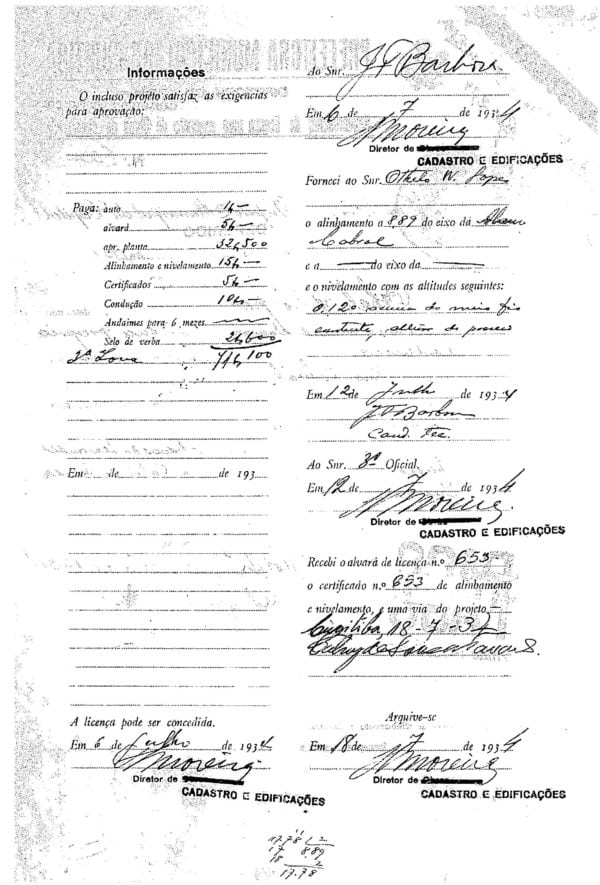 Informações
O incluso projéto satisfaz as exigencias
para aprovação:
Paga: auto 1$—
alvará 5$—
apr. planta 32,500
Alinhamento e nivelamento 15$—
Certificados 5$—
Condução 10$—
Andaimes para 6 mezes
Selo de verba
Em de de 193
A licença pode ser concedida.
Em 6 de Julho de 1934
Moreira
Diretor de
CADASTRO E EDIFICAÇÕES
Ao Snr. J F Barbosa
Em 6 de 7 de 1934
Moreira
Diretor de
CADASTRO E EDIFICAÇÕES
Forneci ao Snr. Othelo W. Lopes
o alinhamento a 8,89 do eixo da
Cabral
e a — do eixo da —
e o nivelamento com as altitudes seguintes:
0,120 acima do meio fio
existente, altura do passeio
Em 12 de Julh de 1934
J F Barbosa
Cond. Tec.
Ao Snr. 3º Oficial.
Em 12 de 7 de 1934
Moreira
Diretor de
CADASTRO E EDIFICAÇÕES
Recebi o alvará de licença n.º 653
o certificado n.º 653 de alinhamento
e nivelamento, e uma via do projeto
Curitiba, 18-7-34
Arquive-se
Em 18 de 7 de 1934
Moreira
Diretor de
CADASTRO E EDIFICAÇÕES
17.78 2
17 8,89
18 2
17.78